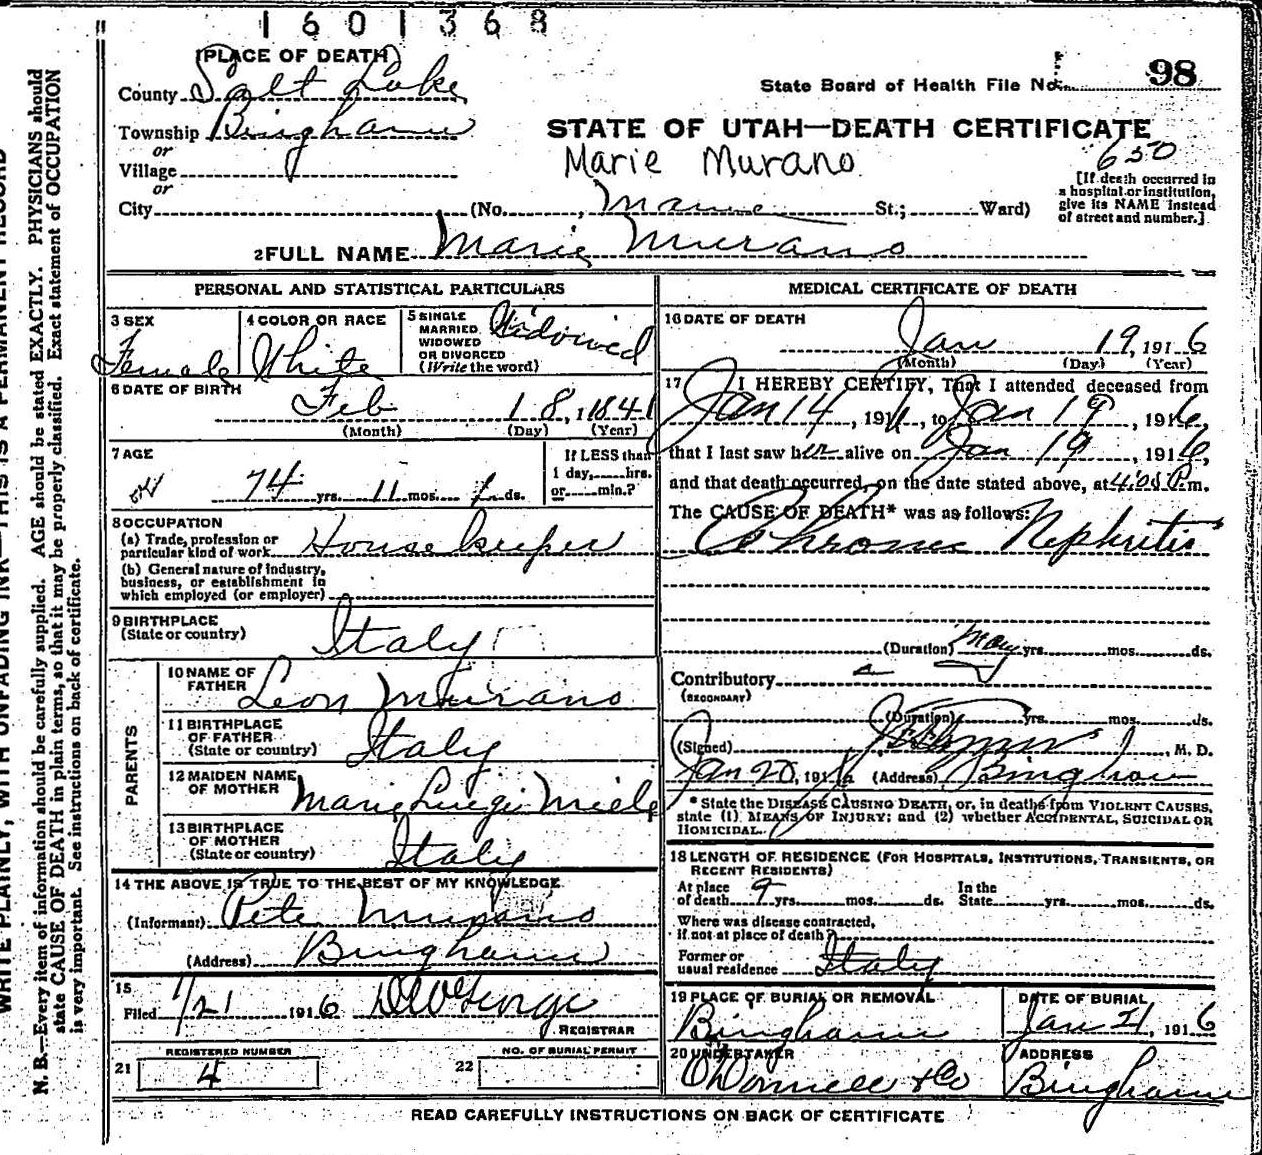 1601368
PLACE OF DEATH
County Salt Lake
State Board of Health File No. 98
Township Bingham
or
STATE OF UTAH—DEATH CERTIFICATE
Village
or
Marie Murano
650
[If death occurred in a hospital or institution, give its NAME instead of street and number.]
City (No. , St.; Ward)
2 FULL NAME Marie Murano
PERSONAL AND STATISTICAL PARTICULARS
3 SEX Female
4 COLOR OR RACE White
5 SINGLE MARRIED WIDOWED OR DIVORCED (Write the word) Widowed
6 DATE OF BIRTH Feb 18, 1841
(Month) (Day) (Year)
7 AGE 74 yrs. 11 mos. 1 ds.
If LESS than 1 day, hrs. or min.?
8 OCCUPATION
(a) Trade, profession or particular kind of work Housekeeper
(b) General nature of industry, business, or establishment in which employed (or employer)
9 BIRTHPLACE (State or country) Italy
PARENTS
10 NAME OF FATHER Leon Murano
11 BIRTHPLACE OF FATHER (State or country) Italy
12 MAIDEN NAME OF MOTHER Marie Luigi Miele
13 BIRTHPLACE OF MOTHER (State or country) Italy
14 THE ABOVE IS TRUE TO THE BEST OF MY KNOWLEDGE
(Informant) Pete Murano
(Address) Bingham
15
Filed 1/21 1916
REGISTRAR
REGISTERED NUMBER
21 4
NO. OF BURIAL PERMIT
22
MEDICAL CERTIFICATE OF DEATH
16 DATE OF DEATH
Jan 19, 1916
(Month) (Day) (Year)
17 I HEREBY CERTIFY, That I attended deceased from
Jan 14, 191 , to Jan 19, 1916,
that I last saw her alive on Jan 19, 1916,
and that death occurred, on the date stated above, at p.m.
The CAUSE OF DEATH* was as follows:
Chronic Nephritis
(Duration) many yrs. mos. ds.
Contributory
(SECONDARY)
(Duration) yrs. mos. ds.
(Signed) , M. D.
Jan 20, 1916 (Address) Bingham
* State the DISEASE CAUSING DEATH, or, in deaths from VIOLENT CAUSES, state (1) MEANS OF INJURY; and (2) whether ACCIDENTAL, SUICIDAL OR HOMICIDAL.
18 LENGTH OF RESIDENCE (FOR HOSPITALS, INSTITUTIONS, TRANSIENTS, OR RECENT RESIDENTS)
At place of death 9 yrs. mos. ds. In the State yrs. mos. ds.
Where was disease contracted, if not at place of death?
Former or usual residence Italy
19 PLACE OF BURIAL OR REMOVAL Bingham
DATE OF BURIAL Jan 21, 1916
20 UNDERTAKER O'Donnell & Co
ADDRESS Bingham
READ CAREFULLY INSTRUCTIONS ON BACK OF CERTIFICATE
WRITE PLAINLY, WITH UNFADING INK—THIS IS A PERMANENT RECORD
N. B.—Every item of information should be carefully supplied. AGE should be stated EXACTLY. PHYSICIANS should
state CAUSE OF DEATH in plain terms, so that it may be properly classified. Exact statement of OCCUPATION
is very important. See instructions on back of certificate.